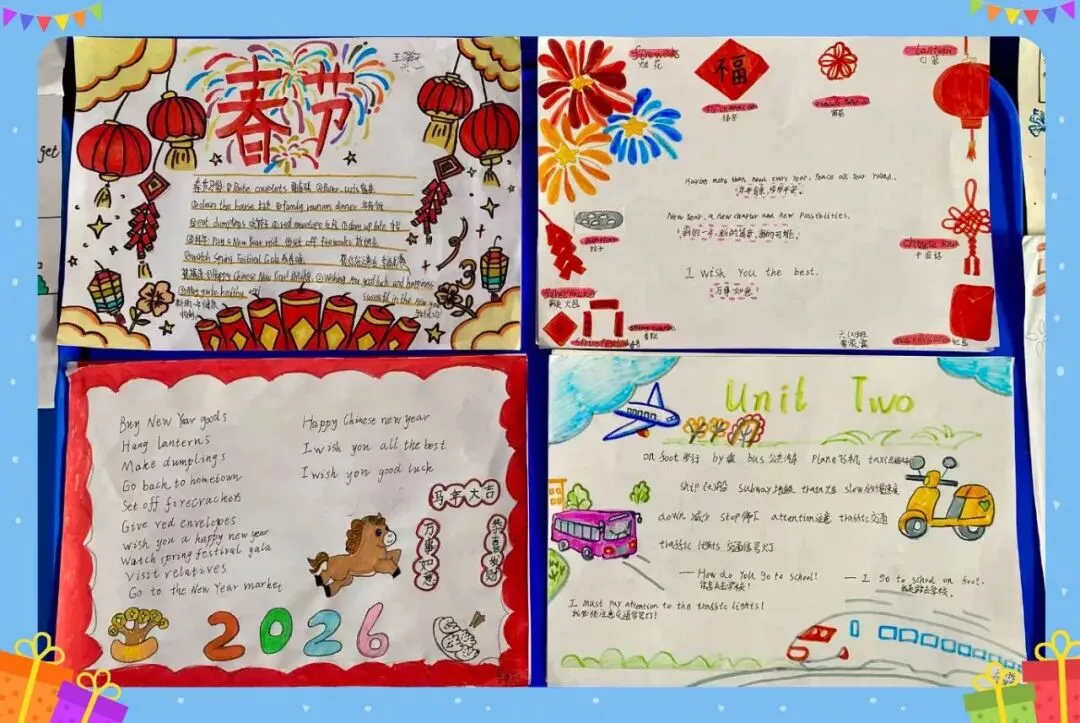 get
春节
春节习俗: ①Paste couplets 贴春联 ②Paper-cuts 窗花
③clean the house 扫尘 ④family reunion dinner 年夜饭
⑤eat dumplings 吃饺子 ⑥red envelope 红包 ⑦stay up late 守岁
⑧拜年 Pay a New Year visit ⑨set off fireworks 放烟花
⑩watch Spring Festival Gala 看春晚
Happy Chinese New Year! Wishing you good luck and happiness
success in the new year
fireworks
烟花
福
福字
窗花
lantern
灯笼
Having more than need every year, Peace all year round.
年年有余,岁岁平安。
New Year, a new chapter and new possibilities.
新的一年,新的篇章,新的可能!
I wish You the best.
万事如意
dumplings
饺子
Chinese knot
中国结
firecracker
鞭炮
Spring Festival
春节
春联
红包
Buy New Year goods
Hang lanterns
Make dumplings
Go back to hometown
Set off firecrackers
Give red envelopes
Wish you a happy new year
Watch spring festival gala
Visit relatives
Go to the New Year market
Happy Chinese new year
I wish you all the best
I wish you good luck
马年大吉
万事如意
恭喜发财
2026
Unit Two
on foot 步行 by 乘 bus 公共汽车 plane 飞机 taxi 出租车
ship (大)船 subway 地铁 train 火车 slow
down 减少 stop 停下 attention 注意 traffic 交通
traffic lights 交通信号灯
— How do you go to school?
你怎么去学校?
— I go to school on foot.
我走路去学校.
I must pay attention to the traffic lights!
我必须注意交通信号灯!